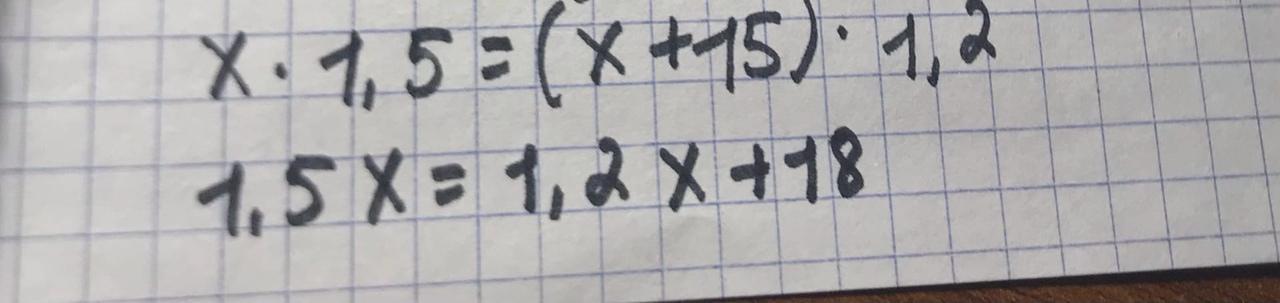 x · 1,5 = (x + 15) · 1,2
1,5x = 1,2x + 18